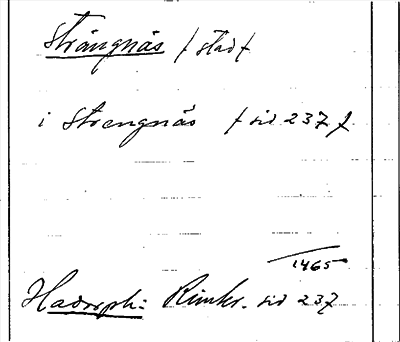 Strängnäs / stad /
i Strengnäs / sid 237 /.
1465
Hadorph: Rimkr. sid 237